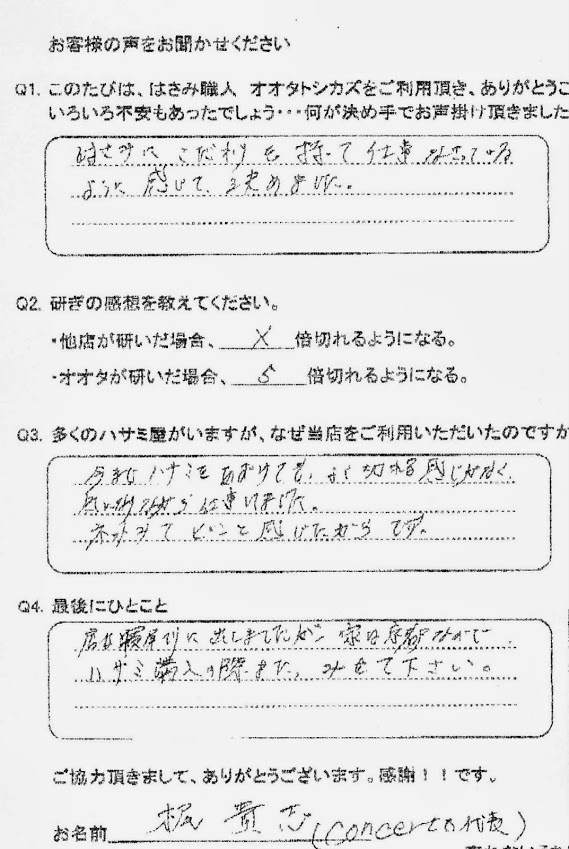 お客様の声をお聞かせください
Q1. このたびは、はさみ職人 オオタトシカズをご利用頂き、ありがとうご
いろいろ不安もあったでしょう・・・何が決め手でお声掛け頂きました
はさみに こだわりを 持って 仕事 なさっている
ように 感じて、決めました。
Q2. 研ぎの感想を教えてください。
・他店が研いだ場合、 X 倍切れるようになる。
・オオタが研いだ場合、 5 倍切れるようになる。
Q3. 多くのハサミ屋がいますが、なぜ当店をご利用いただいたのですか
今まで ハサミを あずけても、よく切れる 感じがなく、
ネットみて ピンと 感じたから です。
Q4. 最後にひとこと
店は寝屋川に 出しましたが 家は京都なので
ハサミ購入の際また、みせて下さい。
ご協力頂きまして、ありがとうございます。感謝！！です。
お名前 梶 貴志 (concerto代表)